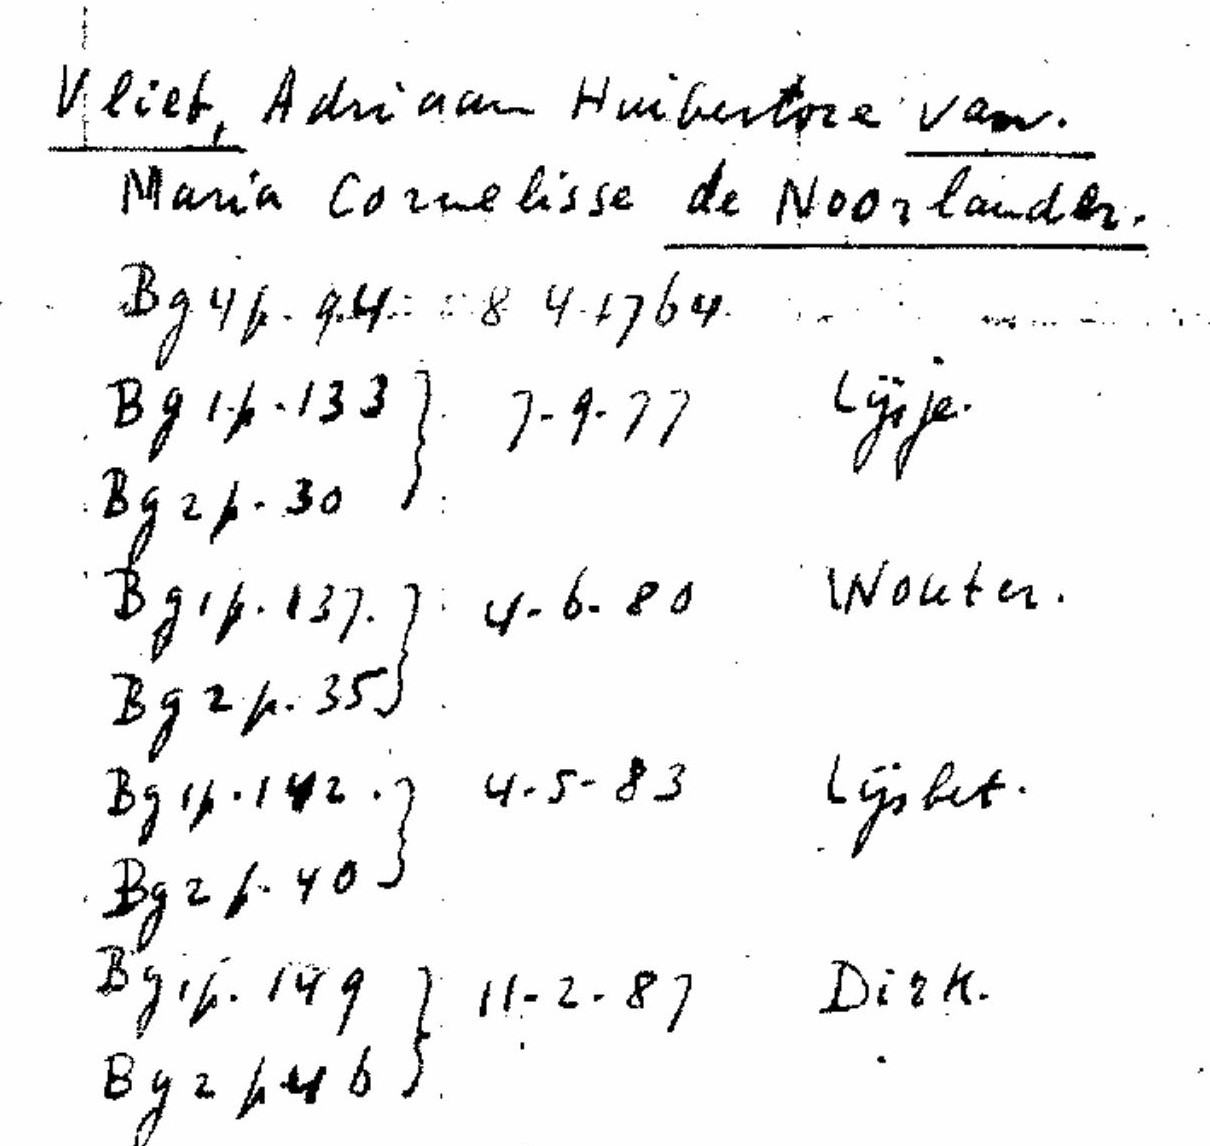 Vliet, Adriaan Huibertsze van.
Maria Cornelisse de Noorlander.
Bg 4 p. 94 8 4-1764
Bg 1 p. 133 } 7-9-77 Lijsje.
Bg 2 p. 30
Bg 1 p. 137. } 4-6-80 Wouter.
Bg 2 p. 35
Bg 1 p. 142. } 4-5-83 Lijsbet.
Bg 2 p. 40
Bg 1 p. 149 } 11-2-87 Dirk.
Bg 2 p. 46